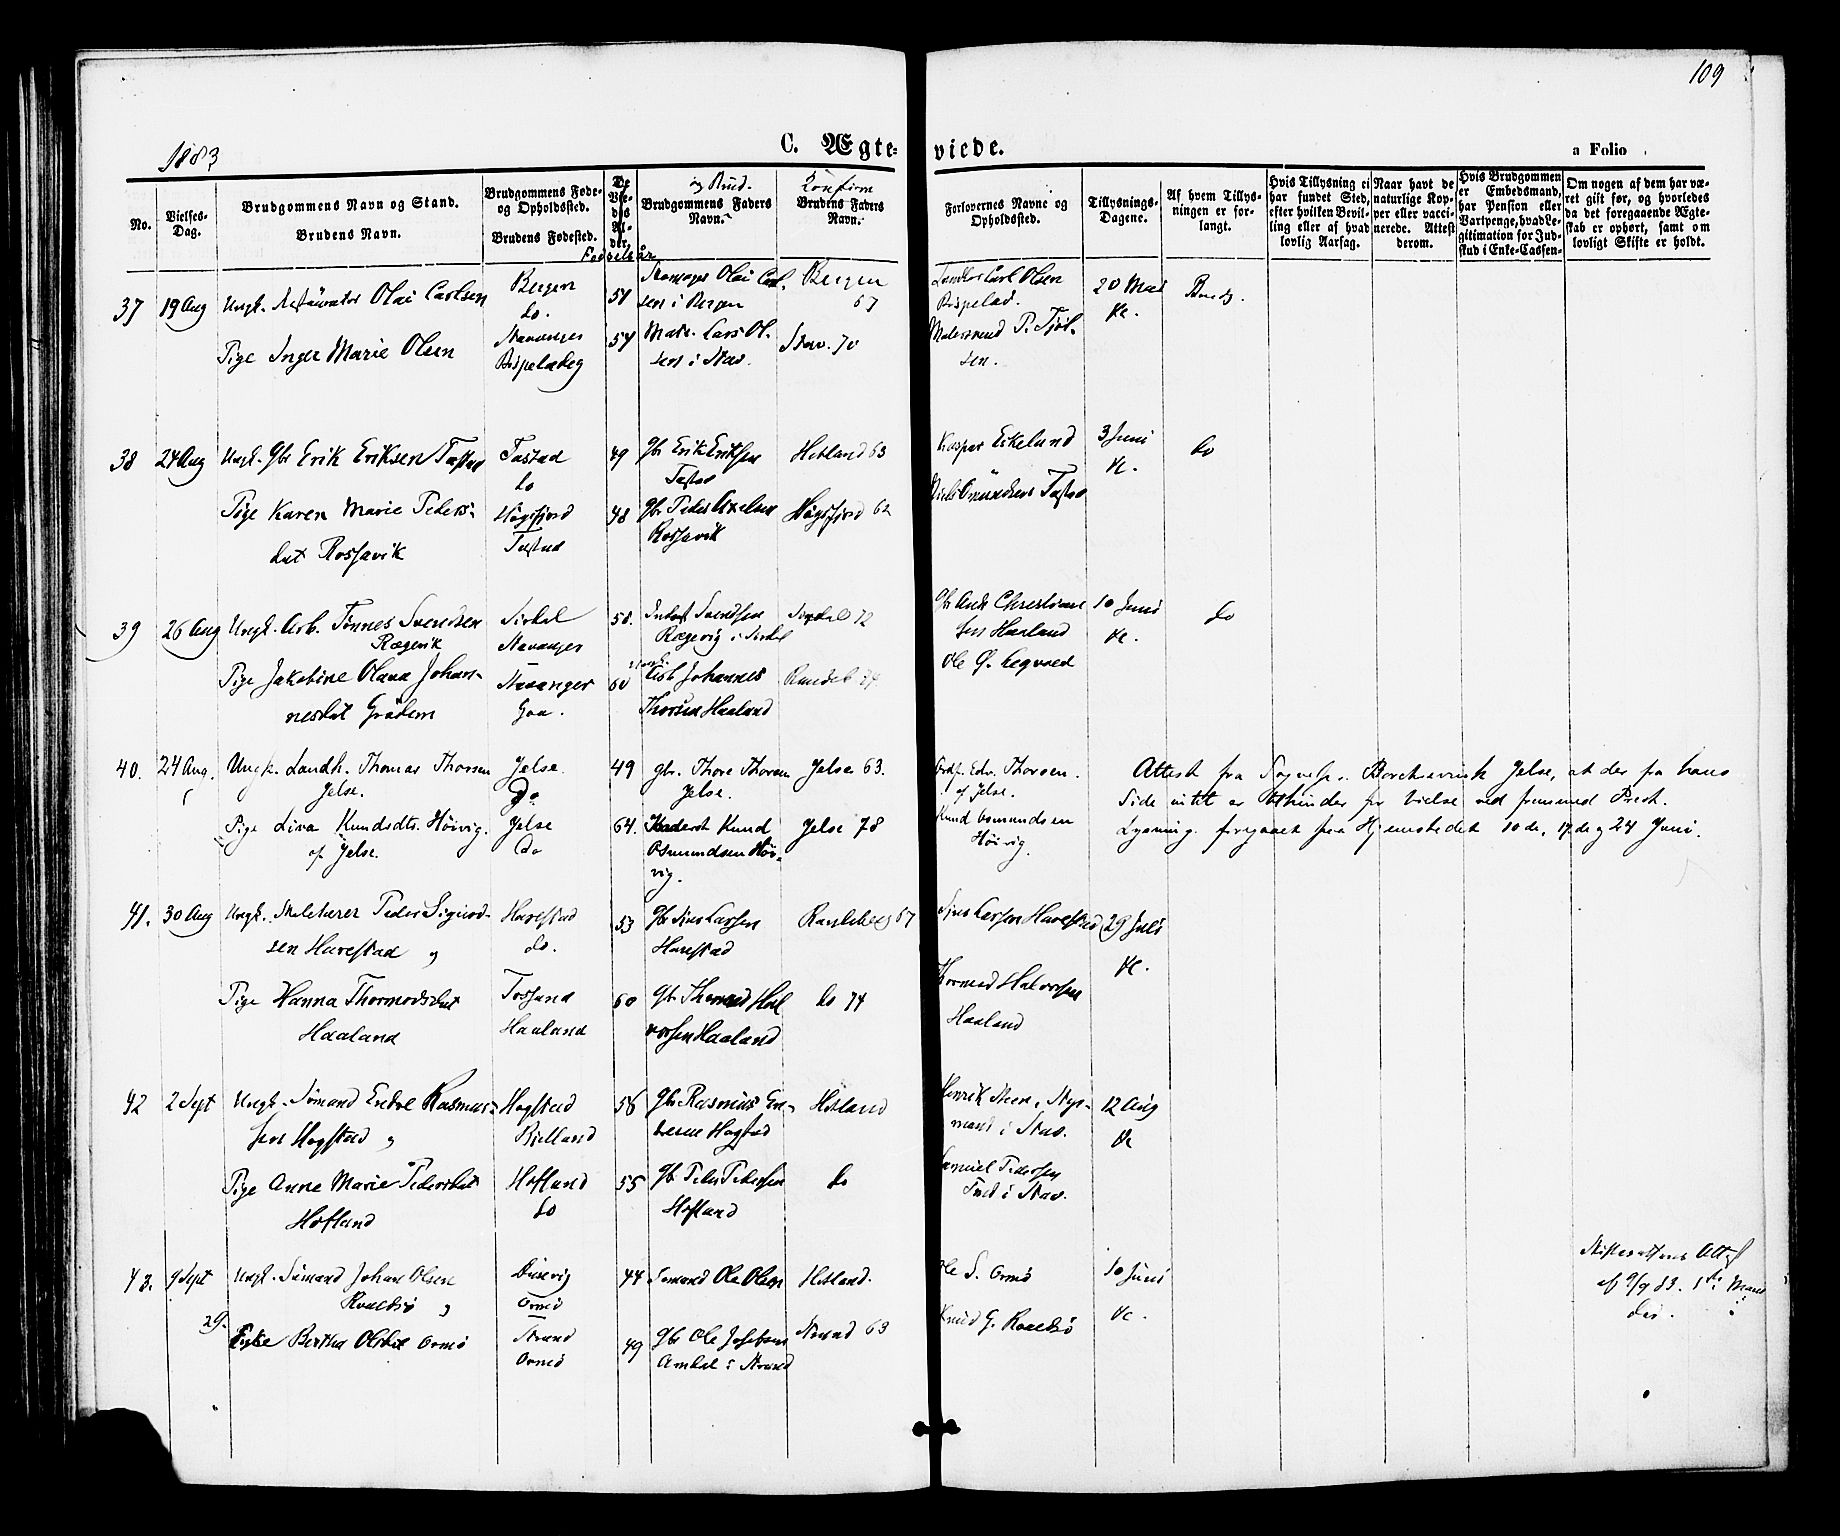 109
1883
C. Ægte-viede.
a Folio
No.
Vielses-Dag.
Brudgommens Navn og Stand.
Brudens Navn.
Brudgommens Føde- og Opholdssted.
Brudens Fødested.
De Viedes Alder.
Fødselsår
og Brud.
Brudgommens Faders Navn.
Konfirm
Brudens Faders Navn.
Forlovernes Navne og Opholdssted.
Tillysnings-Dagene.
Af hvem Tillysningen er forlangt.
Hvis Tillysning ei har fundet Sted, efter hvilken Bevilling eller af hvad lovlig Aarsag.
Naar havt de naturlige Kopper eller vaccinerede. Attest derom.
Hvis Brudgommen er Embedsmand, har Pension eller Vartpenge, hvad Legitimation for Indskud i Enke-Cassen.
Om nogen af dem har været gift før, og hvorledes da det foregaaende Ægteskab er ophørt, samt om lovligt Skifte er holdt.
37 19 Aug Ungk. Restauratør Olai Carlsen Bergen do. 51 Olai Carlsen i Bergen Bergen 67 Carl Olsen Bispelad. 20 Mai &c. Brudg.
Pige Inger Marie Olsen Stavanger Bispeladeg 54 Matr. Lars Olsen i Stav. Stav. 70 P. Tjøl-sen.
38 24 Aug Ungk. Gbr Erik Eriksen Tastad Tastad do 49 Gbr Erik Eriksen Tastad Hetland 63 Kaspar Eikeland 3 Juni &c. do
Pige Karen Marie Peders-dat Rossavik Høgsfjord Tastad 48 Gbr Peder Axelsen Rossavik Høgsfjord 62 Niels Omundsen Tastad
39 26 Aug Ungk. Arb. Tønnes Svendsen Rægevik Sirdal Stavanger 58. Svendsen Rægevig i Sirdal Sirdal 72 Gbr Andr Christian-sen Haaland 10 Juni &c. do
Pige Jakobine Olava Johan-nesdat Grødem Stavanger Goa. 60 Arb Johannes Thorsen Haaland Randeb 74 Ole G. Legvoed
40. 24 Aug. Ungk. Landh. Thomas Thorsen Jelse. Jelse. Do 49 gbr. Thore Thorsen Jelse. Jelse 63. Edv. Thorsen. af Jelse.
Attest fra Sognepr. Borchsenius k Jelse, at der fra hans
Side intet er til hinder for Vielse ved fremmed Prest.
Lysning foregaaet fra Hjemstedet 10de, 17de og 24 Juni.
Pige Lina Knudsdtr. Høivig. af Jelse. Jelse Do 64. Knud Osmundsen Høi-vig. Jelse 78 Knud Osmundsen Høivig.
41. 30 Aug Ungk. Skolelærer Peder Sigurd-sen Harestad og Harestad do. 53 Gbr Sjur Larsen Harestad Randeberg 67 Sjur Larsen Harestad 29 Juli &c.
Pige Hanna Thormodsdat Haaland Tossand Haaland 60 Gbr Thormod Hal-vorsen Haaland do 74 Thormod Halvorsen Haaland
42 2 Sept Ungk. Sømand Endre Rasmus-sen Hogstad og Hogstad Bjelland 56 Gbr Rasmus En-dresen Hogstad Hetland Henrik Steen, Styr-mand i Stav. 12 Aug &c
Pige Anne Marie Pedersdat Hofland Hofland do 55 Gbr Peder Pedersen Hofland do Samuel Pedersen i Stav.
43. 9 Sept Ungk. Sømand Johan Olsen Roaldsø og Dusevig Ormø 44 Sømand Ole Olsen Hetland. Ole S. Ormø 10 Juni &c.
29. Enke Bertha Olsdat Ormø Strand Ormø 49 Gbr Ole Josefsen Amdal i Strand Strand 63 Knud G. Roaldsø
Skifterettens Attest
af 9/9 83. 1ste Mand
død.